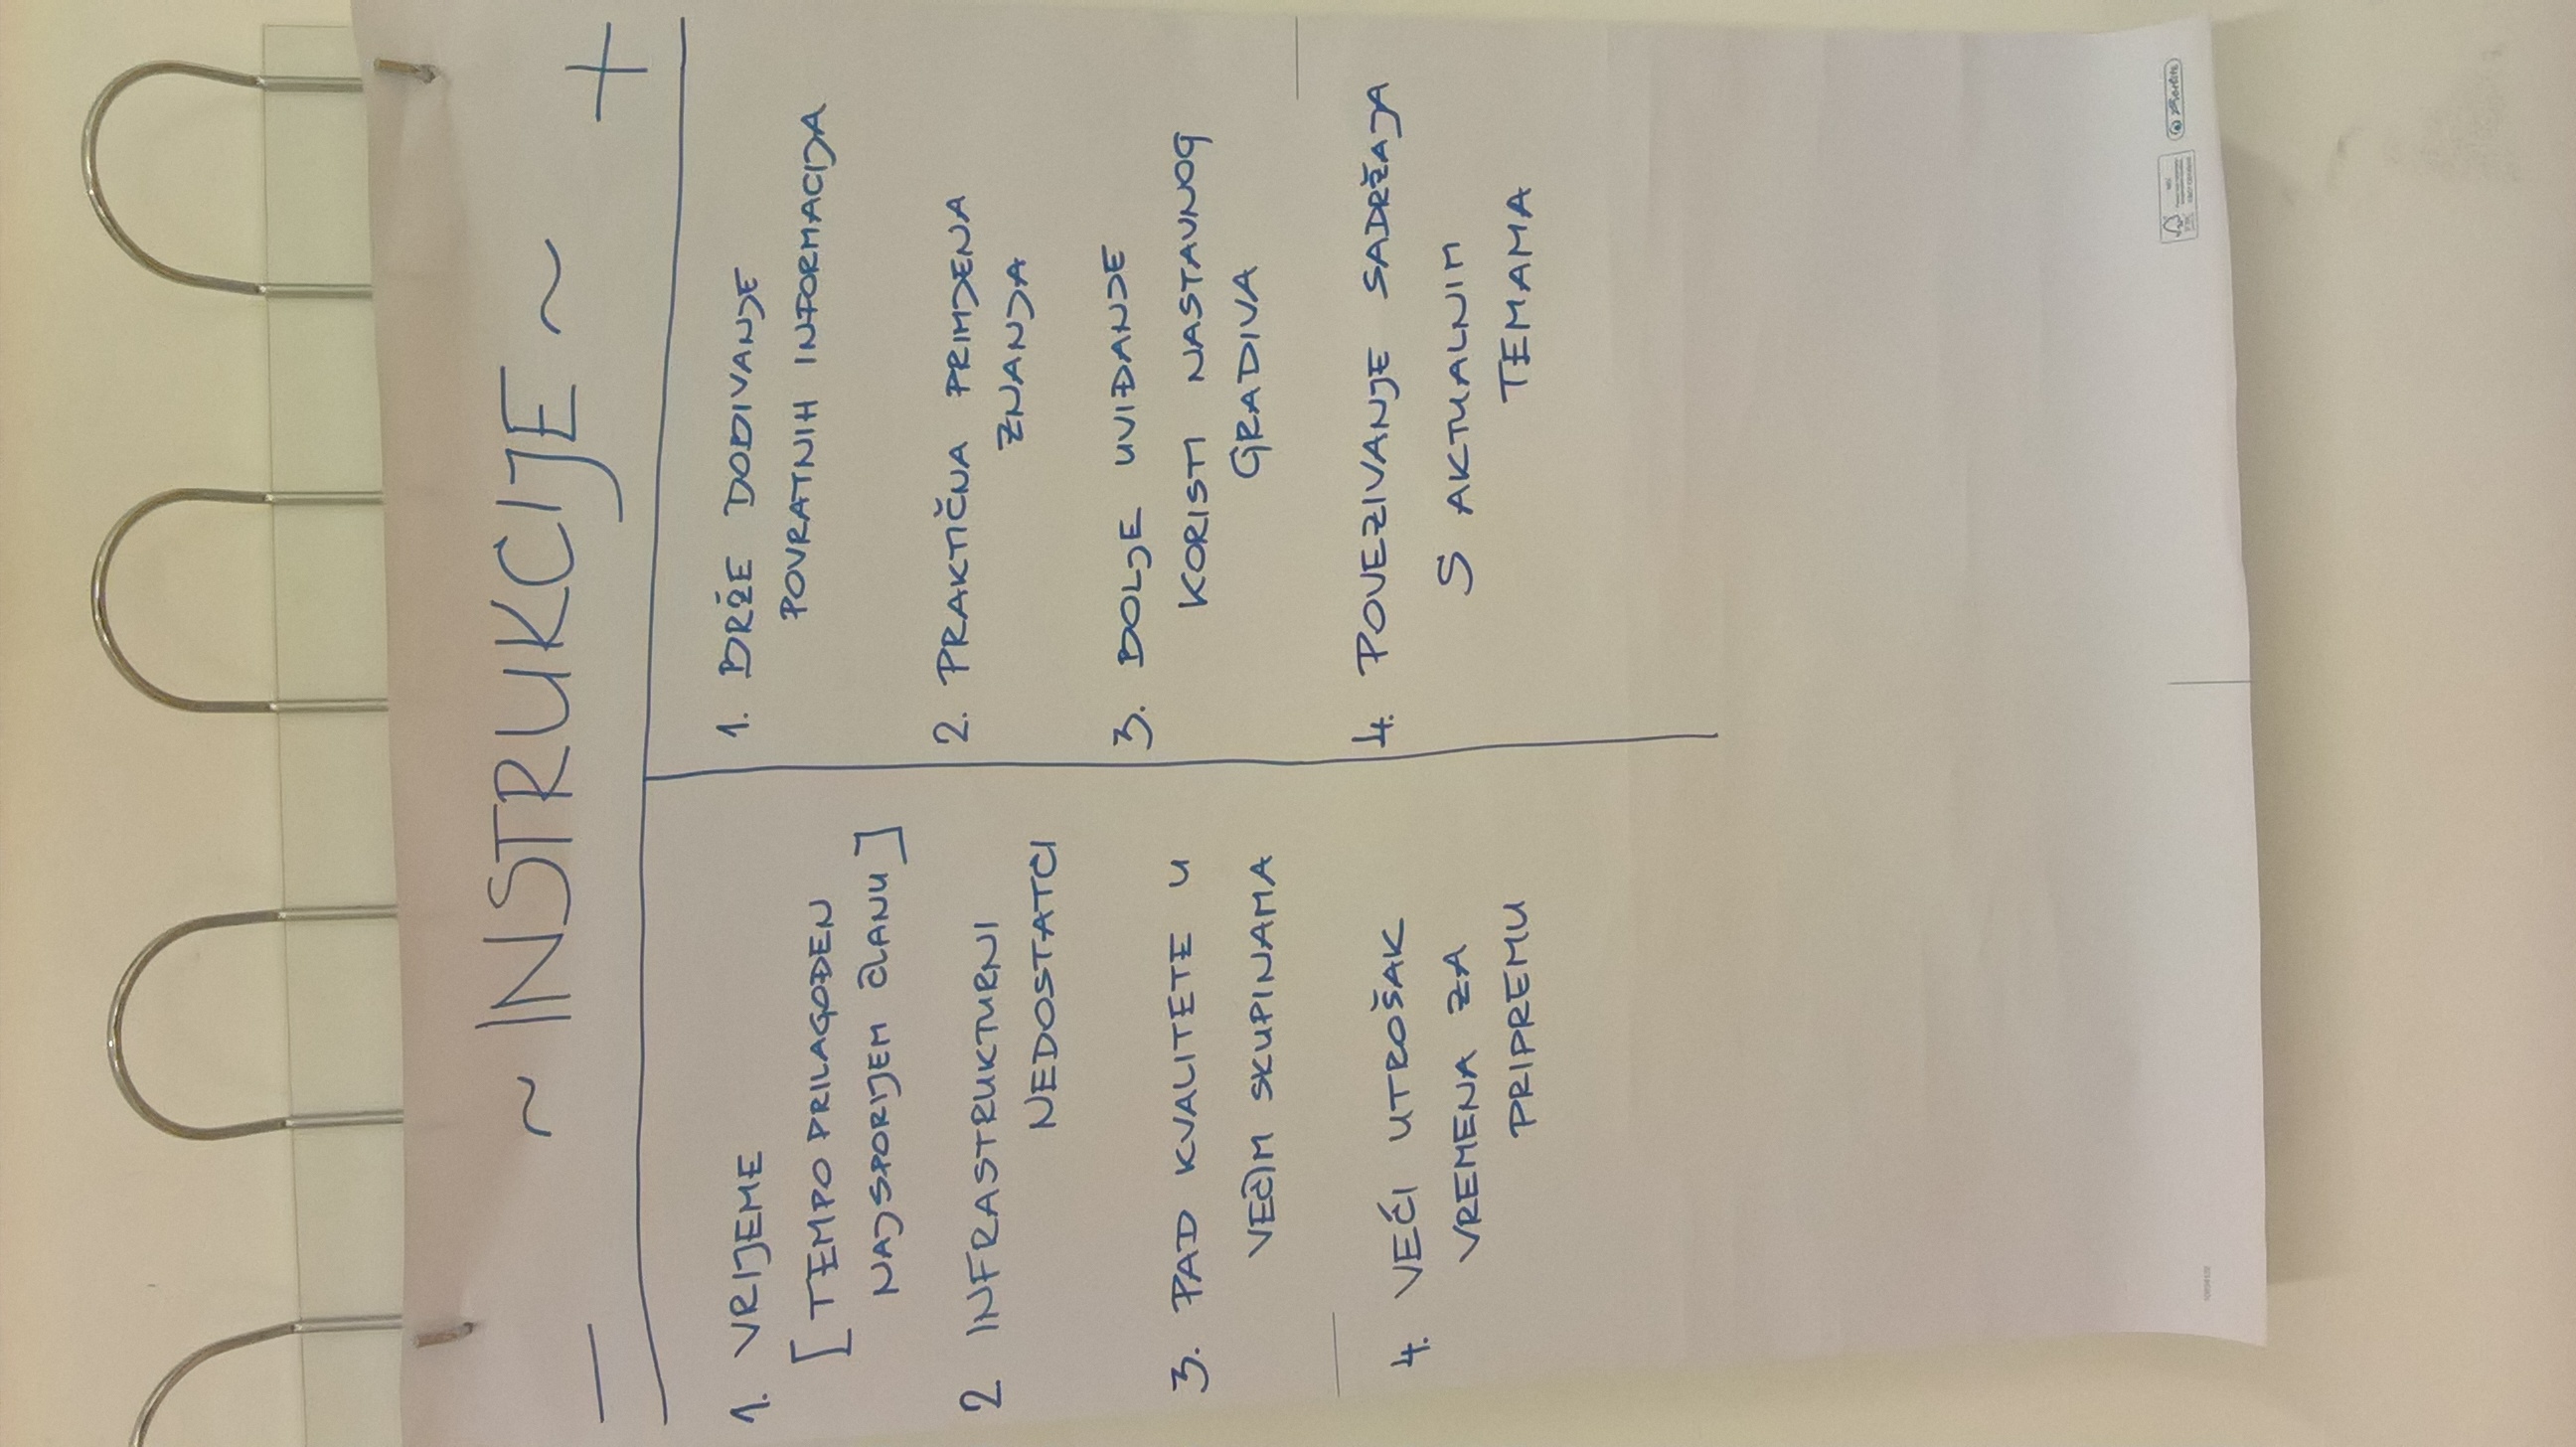 ~ INSTRUKCIJE ~
— +
1. VRIJEME
[TEMPO PRILAGOĐEN
NAJSPORIJEM ČLANU]
2 INFRASTRUKTURNI
NEDOSTATCI
3. PAD KVALITETE U
VEĆIM SKUPINAMA
4. VEĆI UTROŠAK
VREMENA ZA
PRIPREMU
1. BRŽE DODIVANJE
POVRATNIH INFORMACIJA
2. PRAKTIČNA PRIMJENA
ZNANJA
3. BOLJE UVIĐANJE
KORISTI NASTAVNOG
GRADIVA
4. POVEZIVANJE SADRŽAJA
S AKTUALNIM
TEMAMA